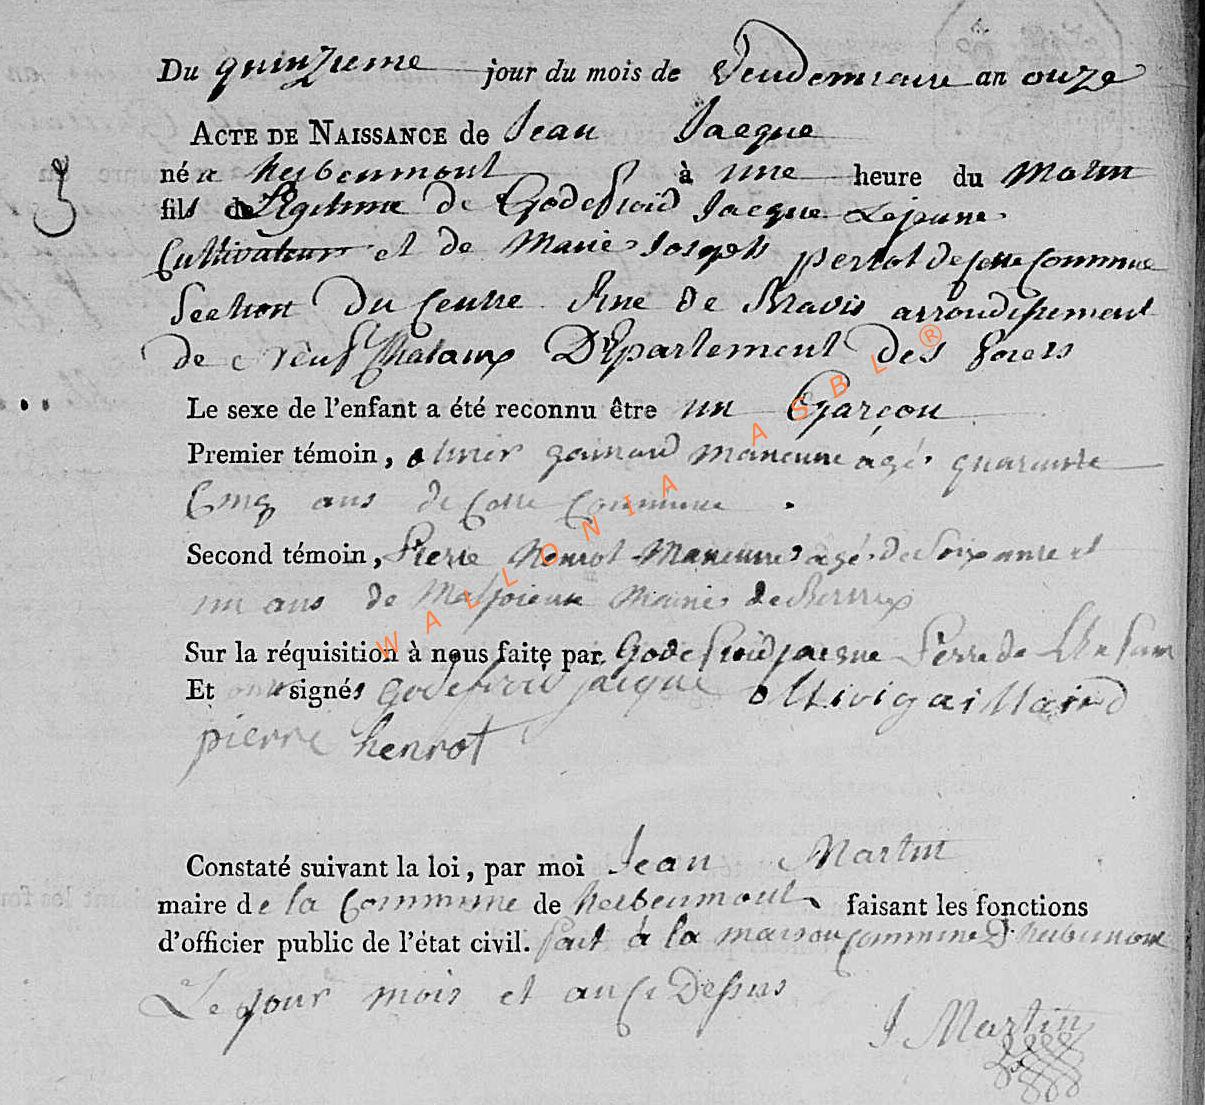 Du quinzieme jour du mois de Vendemiaire an onze
ACTE DE NAISSANCE de Jean Jacque
3
né a herbeumont à une heure du matin
fils de Legitime de Godefroid Jacque Lejeune
Cultivateur et de Marie Joseph perlot de cette Commune
Section Du Centre Rue de arrondissement
de Neufchataux Département des forets
Le sexe de l'enfant a été reconnu être un Garçon
Premier témoin, olivier gaillard maneuvre agé quarante
Cinq ans de Cette Commune .
Second témoin, Pierre henrot Maneuvre agé de Soixante et
un ans de Mairie de
Sur la réquisition à nous faite par Godefroid jacque Perre de L'Enfant
Et ont signés godefroid jacque ollivi gaillaird
pierre henrot
Constaté suivant la loi, par moi Jean Martin
maire de la Commune de herbeumont faisant les fonctions
d'officier public de l'état civil. fait à la maison commune D'herbeumont
Le jour mois et an Ci Dessus
J Martin
WALLONIA ASBL ®